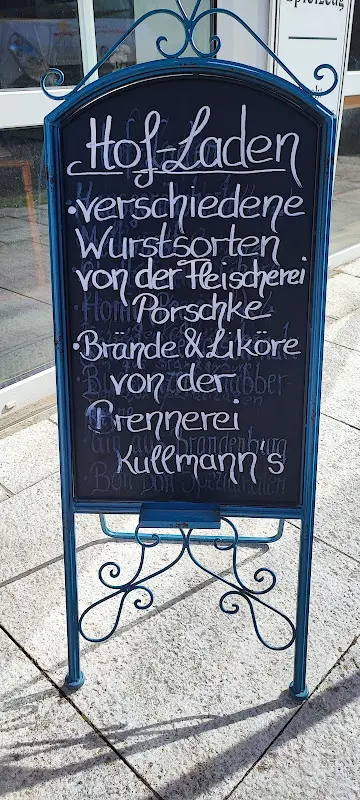 Spielzeug
Hof-Laden
• verschiedene
Wurstsorten
von der Fleischerei
Porschke
• Brände & Liköre
von der
Brennerei
Kullmann's